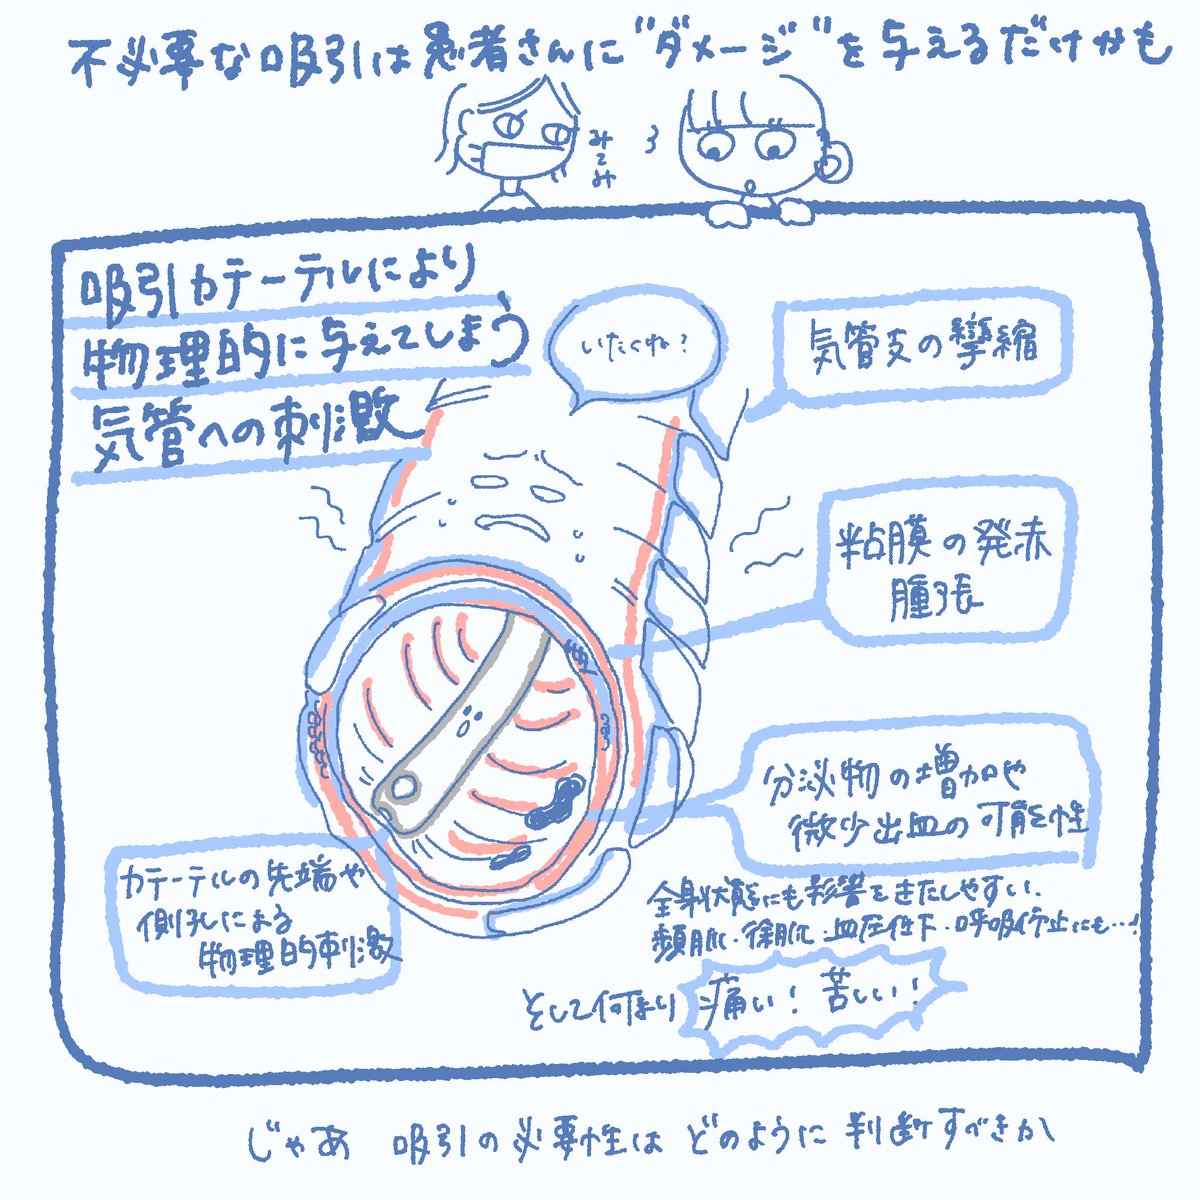 不必要な吸引は患者さんに"ダメージ"を与えるだけかも
みてみ
吸引カテーテルにより
物理的に与えてしまう
気管への刺激
いたくね?
気管支の攣縮
粘膜の発赤
腫張
分泌物の増加や
微少出血の可能性
カテーテルの先端や
側孔による
物理的刺激
全身状態にも影響をきたしやすい.
頻脈・徐脈・血圧低下・呼吸停止にも…!
そして何より 痛い! 苦しい!
じゃあ 吸引の必要性は どのように 判断すべきか